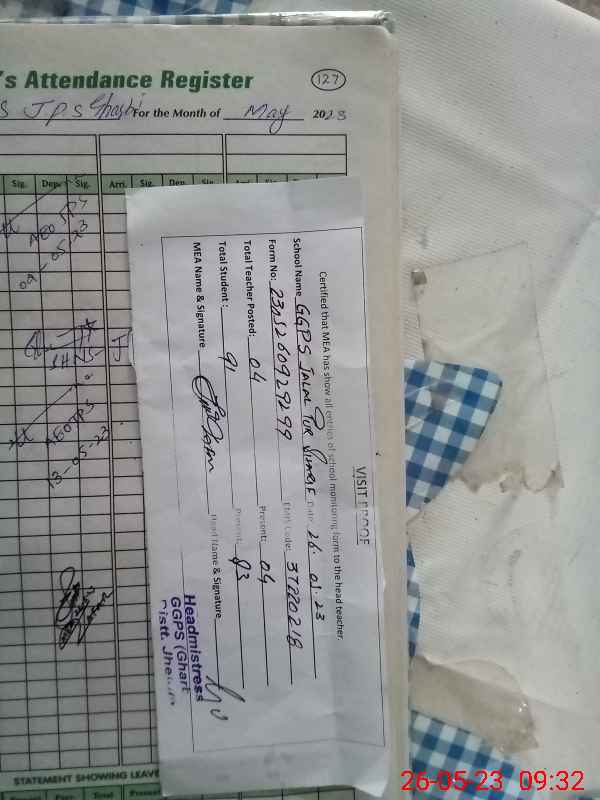 's Attendance Register
127
For the Month of May 2023
Sig. Dep. Sig. Arri. Sig. Dep.
AEO JPS
09-05-23
AEO JPS
13-05-23
VISIT PROOF
Certified that MEA has show all entries of school monitoring form to the head teacher.
School Name GGPS JALAL PUR Date: 26.05.23
Form No: 2305260929299 EMIS Code: 37220218
Total Teacher Posted: 04 Present: 04
Total Student: 91 Present: 83
MEA Name & Signature Head Name & Signature
Headmistress
GGPS (Ghart
Distt. Jhe
STATEMENT SHOWING LEAVE
Total
26-05-23 09:32